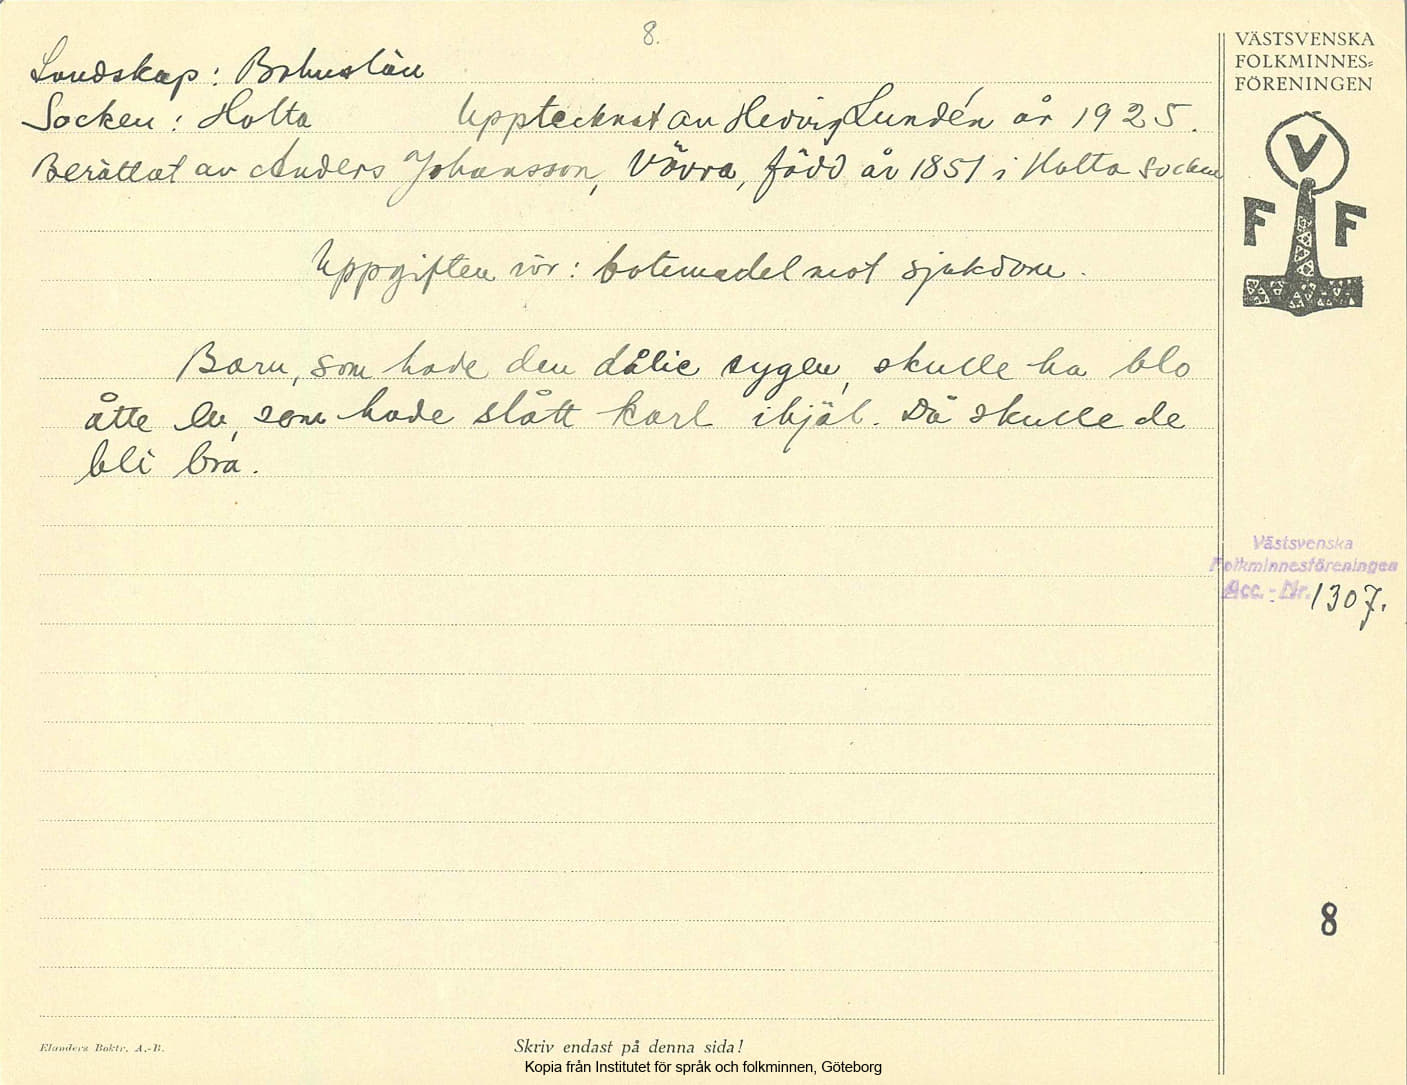 8.
VÄSTSVENSKA
FOLKMINNES=
FÖRENINGEN
V
F F
Landskap: Bohuslän
Socken: Holta Upptecknat av Hedvig Lundén år 1925.
Berättat av Anders Johansson, Vävra, född år 1851 i Holta socken
Uppgiften rör: botemedel mot sjukdom.
Barn, som hade den dålie sygen, skulle ha blo
åtte en, som hade slått karl ihjäl. Då skulle de
bli bra.
Västsvenska
Folkminnesföreningen
Acc. - Nr. 1307.
8
Elanders Boktr. A.-B.
Skriv endast på denna sida!
Kopia från Institutet för språk och folkminnen, Göteborg